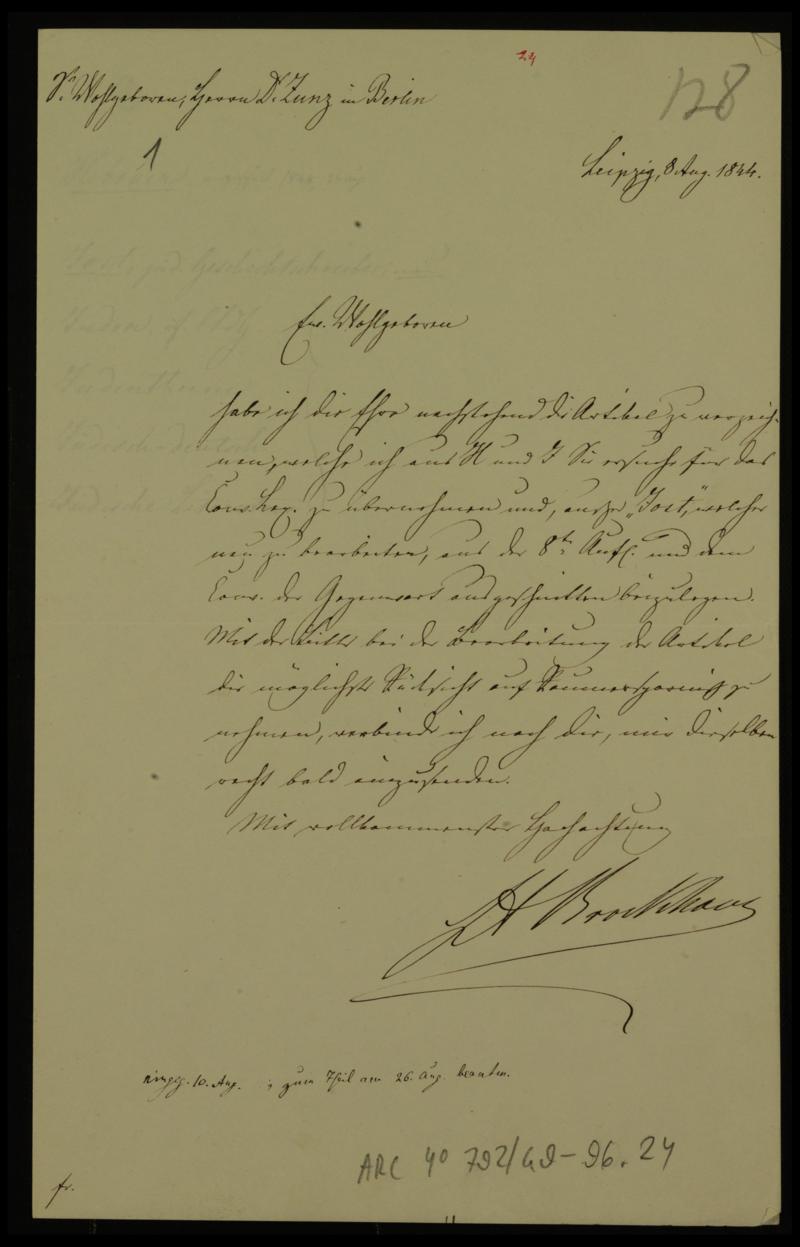 24
128
Sr. Wohlgeboren, Herrn Dr. Zunz in Berlin
1
Leipzig, 8 Aug. 1844.
Ew. Wohlgeboren
habe ich die Ehre nachstehend die Artikel zu verzeich-
nen, welche ich aus H und I Sie ersuche für das
Conv. Lex. zu übernehmen und, außer „Jost“, welcher
neu zu bearbeiten, aus der 8ten Aufl. und dem
Conv. der Gegenwart ausgeschnitten beizulegen.
Mit der Bitte bei der Bearbeitung der Artikel
die möglichste Rücksicht auf Raumersparniß zu
nehmen, verbinde ich noch die, mir dieselben
recht bald einzusenden.
Mit vollkommenster Hochachtung
Brockhaus
eingeg. 10. Aug. zum Theil am 26. Aug. beantw.
ARC 4° 792/G9-96.24
fr.